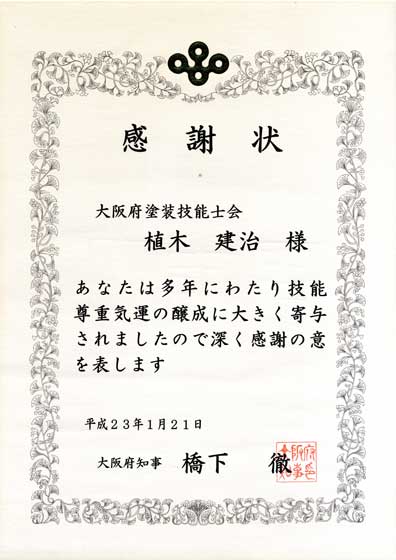 感謝状
大阪府塗装技能士会
植木 建治 様
あなたは多年にわたり技能
尊重気運の醸成に大きく寄与
されましたので深く感謝の意
を表します
平成23年1月21日
大阪府知事 橋下 徹